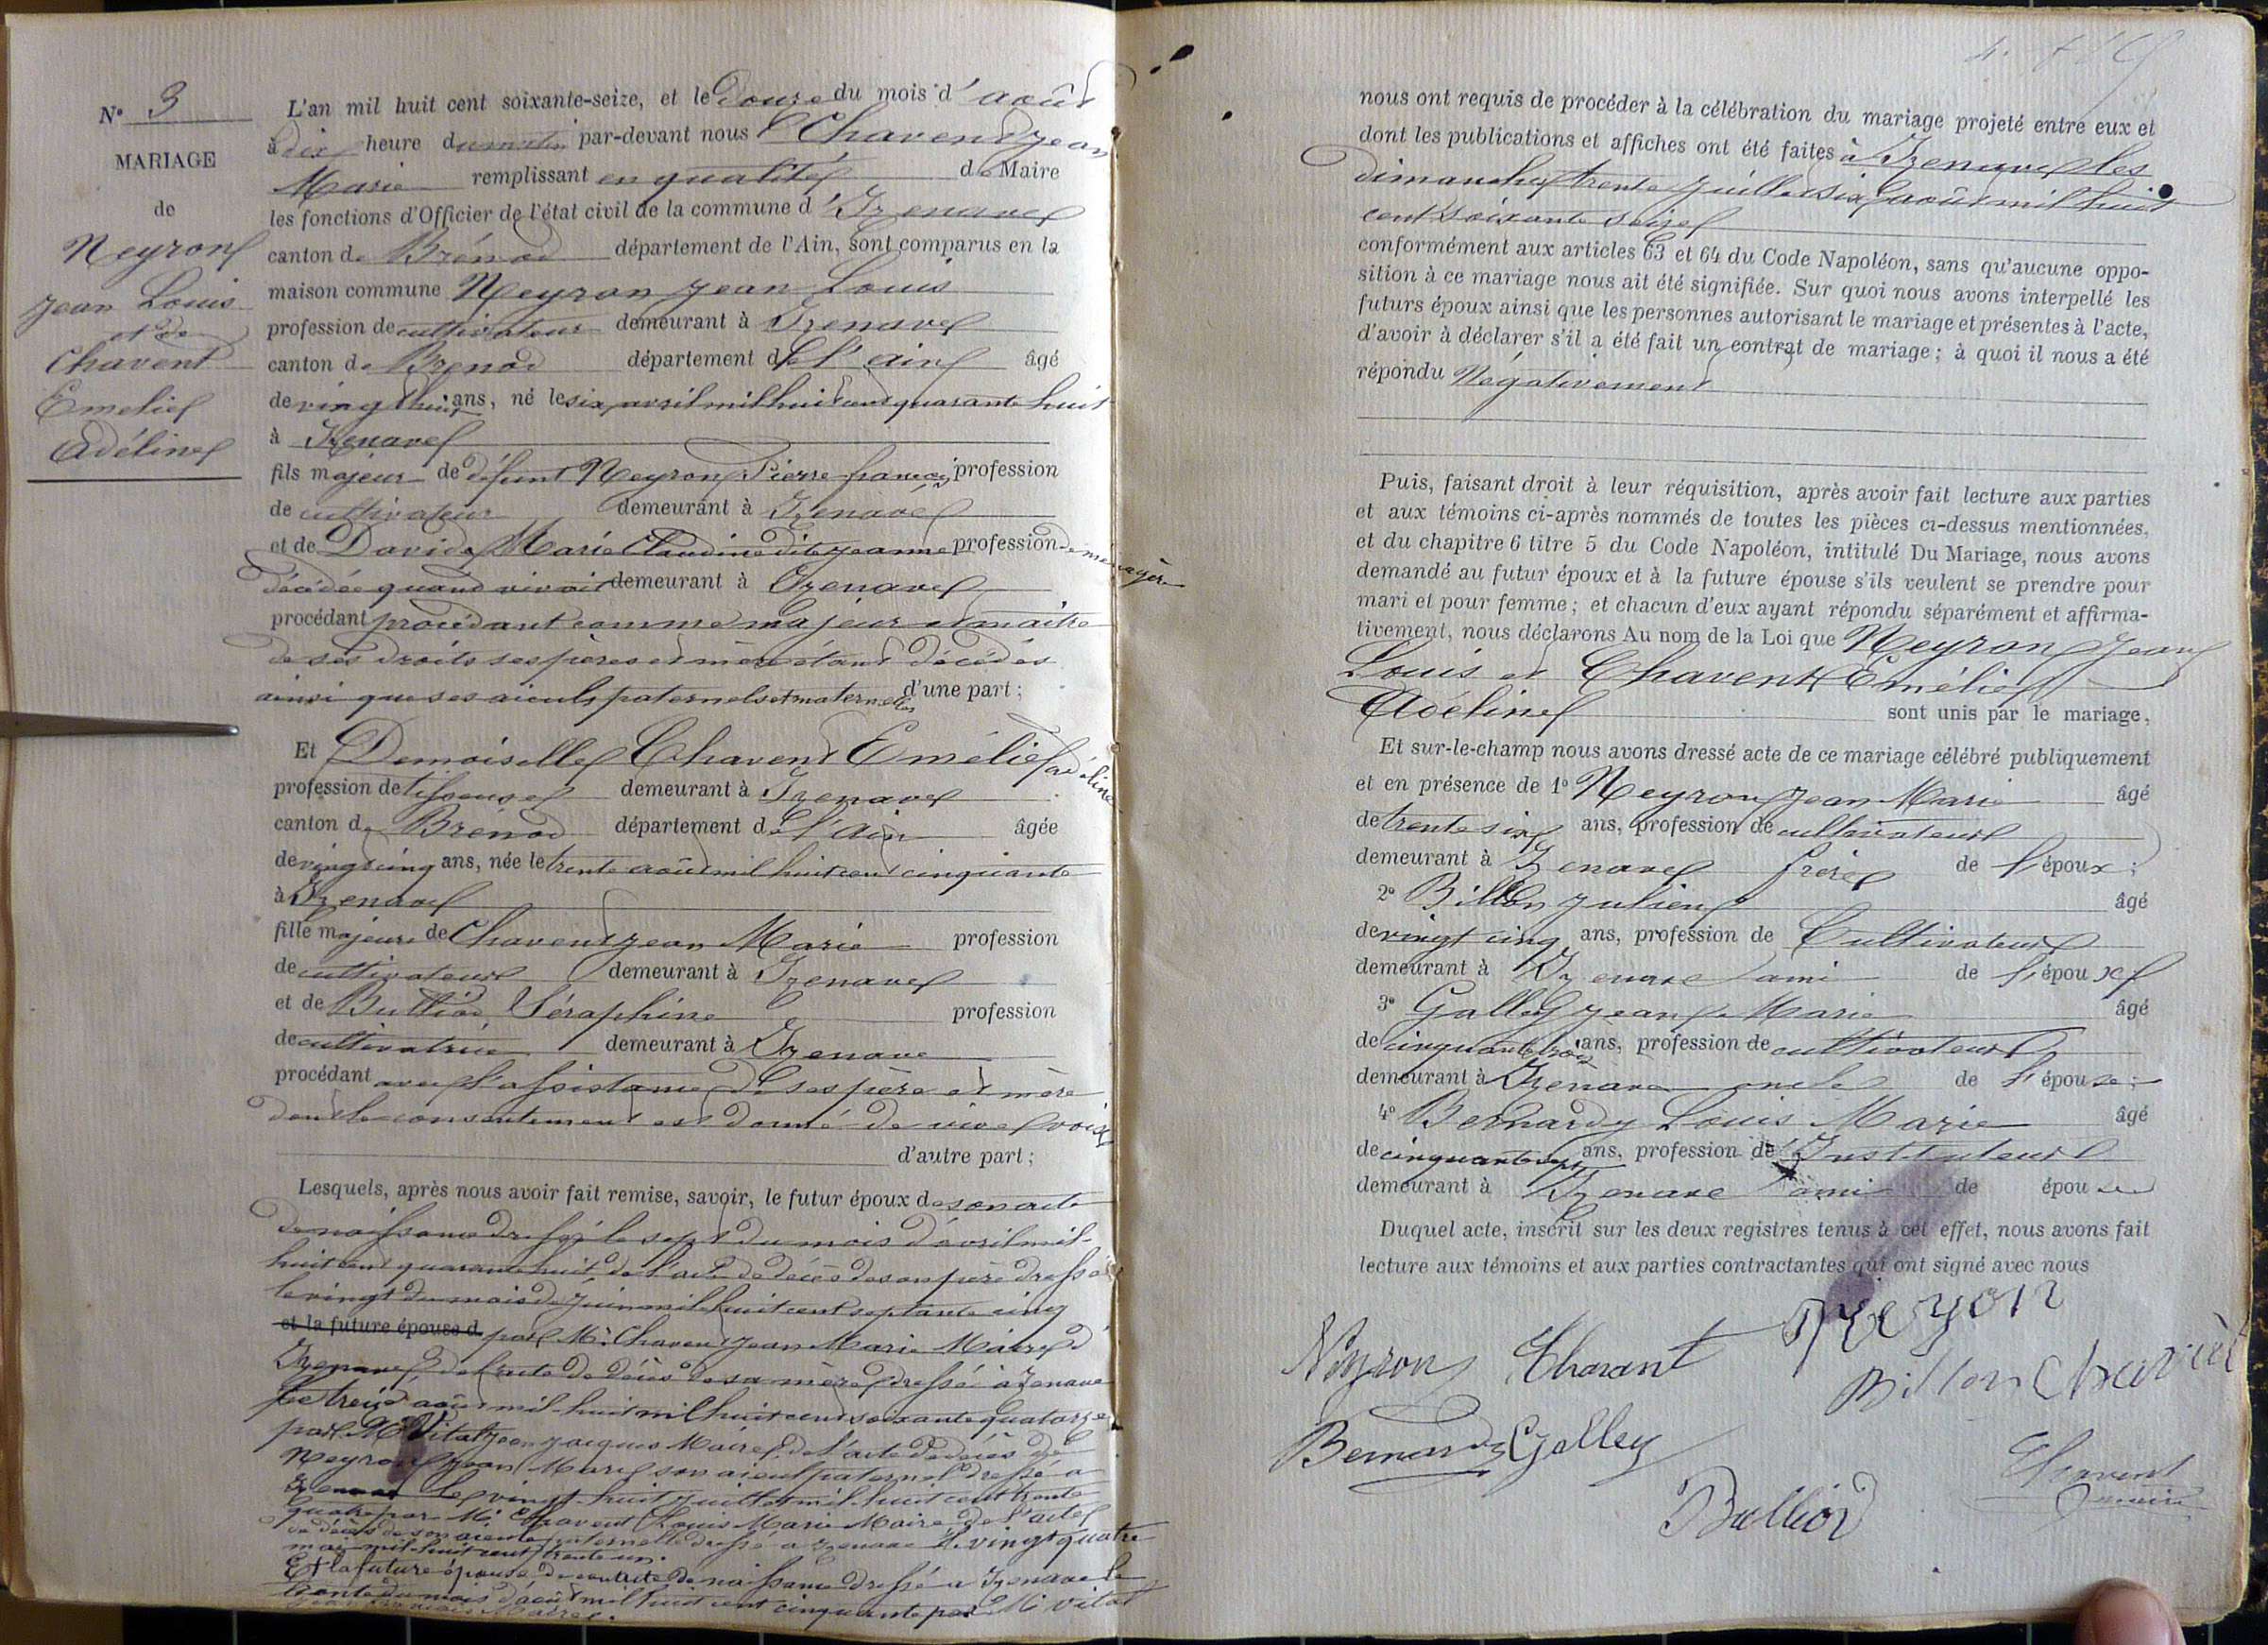 N° 3
MARIAGE
de
Neyron
Jean Louis
et de
Chavent
Emelie
Adéline
L'an mil huit cent soixante-seize, et le douze du mois d'août
à dix heure du matin par-devant nous Chavent Jean
Marie remplissant en qualité de Maire
les fonctions d'Officier de l'état civil de la commune d'Izenave
canton de Brénod département de l'Ain, sont comparus en la
maison commune Neyron Jean Louis
profession de cultivateur demeurant à Izenave
canton de Brenod département de l'ain âgé
de vingt huit ans, né le six avril mil huit cent quarante huit
à Izenave
fils majeur de défunt Neyron Pierre françois profession
de cultivateur demeurant à Izenave
et de David Marie Claudine dite jeanne profession de menagère
décédée quand vivait demeurant à Izenave
procédant procédant comme majeur et maître
de ses droits ses pères et mère étant décédés
ainsi que ses aieuls paternels et maternelles d'une part ;
Et Demoiselle Chavent Emélie adéline
profession de tisseuse demeurant à Izenave
canton de Brénod département de l'Ain âgée
de vingt cinq ans, née le trente août mil huit cent cinquante
à Izenave
fille majeure de Chavent Jean Marie profession
de cultivateur demeurant à Izenave
et de Bulliod Séraphine profession
de cultivatrice demeurant à Izenave
procédant avec l'assistance de ses père et mère
dont le consentement est donné de vive voix
d'autre part ;
Lesquels, après nous avoir fait remise, savoir, le futur époux de son acte
de naissance dressé le sept du mois d'avril mil
huit cent quarante huit de l'acte de décès de son père dressé
le vingt du mois de juin mil huit cent septante cinq
et la future épouse d par Mr Chavent Jean Marie Maire d
Izenave, de l'acte de décès de sa mère dressé à Izenave
le treize août mil huit mil huit cent soixante quatorze
par Mr Vital Jean Jacques Maire, de l'acte de décès de
Neyron Jean Marie son aieul paternel dressé a
Izenave le vingt huit juillet mil huit cent trente
quatre par Mr Chavent Louis Marie Maire de l'acte
de décès de son aieule paternelle dressé a Izenave le vingt quatre
mai mil huit cent trente un.
Et la future épouse de son acte de naissance dressé a Izenave le
trente du mois d'août mil huit cent cinquante par Mr Vital
Maire.
nous ont requis de procéder à la célébration du mariage projeté entre eux et
dont les publications et affiches ont été faites à Izenave les
dimanches trente juillet six août mil huit
cent soixante seize
conformément aux articles 63 et 64 du Code Napoléon, sans qu'aucune oppo-
sition à ce mariage nous ait été signifiée. Sur quoi nous avons interpellé les
futurs époux ainsi que les personnes autorisant le mariage et présentes à l'acte,
d'avoir à déclarer s'il a été fait un contrat de mariage ; à quoi il nous a été
répondu Négativement
Puis, faisant droit à leur réquisition, après avoir fait lecture aux parties
et aux témoins ci-après nommés de toutes les pièces ci-dessus mentionnées,
et du chapitre 6 titre 5 du Code Napoléon, intitulé Du Mariage, nous avons
demandé au futur époux et à la future épouse s'ils veulent se prendre pour
mari et pour femme ; et chacun d'eux ayant répondu séparément et affirma-
tivement, nous déclarons Au nom de la Loi que Neyron Jean
Louis et Chavent Emélie
Adéline sont unis par le mariage,
Et sur-le-champ nous avons dressé acte de ce mariage célébré publiquement
et en présence de 1° Neyron Jean Marie âgé
de trente six ans, profession de cultivateur
demeurant à Izenave frère de l'époux ;
2° Billon Julien âgé
de vingt cinq ans, profession de Cultivateur
demeurant à Izenave ami de l'époux
3° Galley Jean Marie âgé
de cinquante trois ans, profession de cultivateur
demeurant à Izenave oncle de l'épouse ;
4° Bernardy Louis Marie âgé
de cinquante sept ans, profession d'Instituteur
demeurant à Izenave ami de épouse
Duquel acte, inscrit sur les deux registres tenus à cet effet, nous avons fait
lecture aux témoins et aux parties contractantes qui ont signé avec nous
Neyron Chavant Neyon
Billon Chavent
Bernardy Galley
Chavent
maire
Bulliod